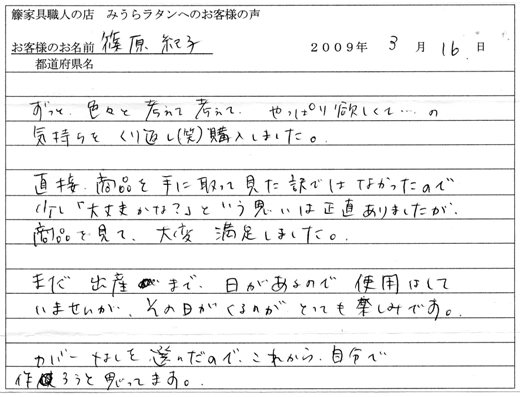 籐家具職人の店　みうらラタンへのお客様の声
お客様のお名前 篠原 紀子 2009年 3月 16日
都道府県名
ずっと、色々と考えて考えて、やっぱり欲しくて…の
気持ちをくり返し(笑)購入しました。
直接、商品を手に取って見た訳ではなかったので
少し「大丈夫かな?」という思いは正直ありましたが、
商品を見て、大変満足しました。
まだ出産まで、日があるので使用はして
いませんが、その日がくるのがとっても楽しみです。
カバーなしを選んだので、これから、自分で
作ろうと思ってます。